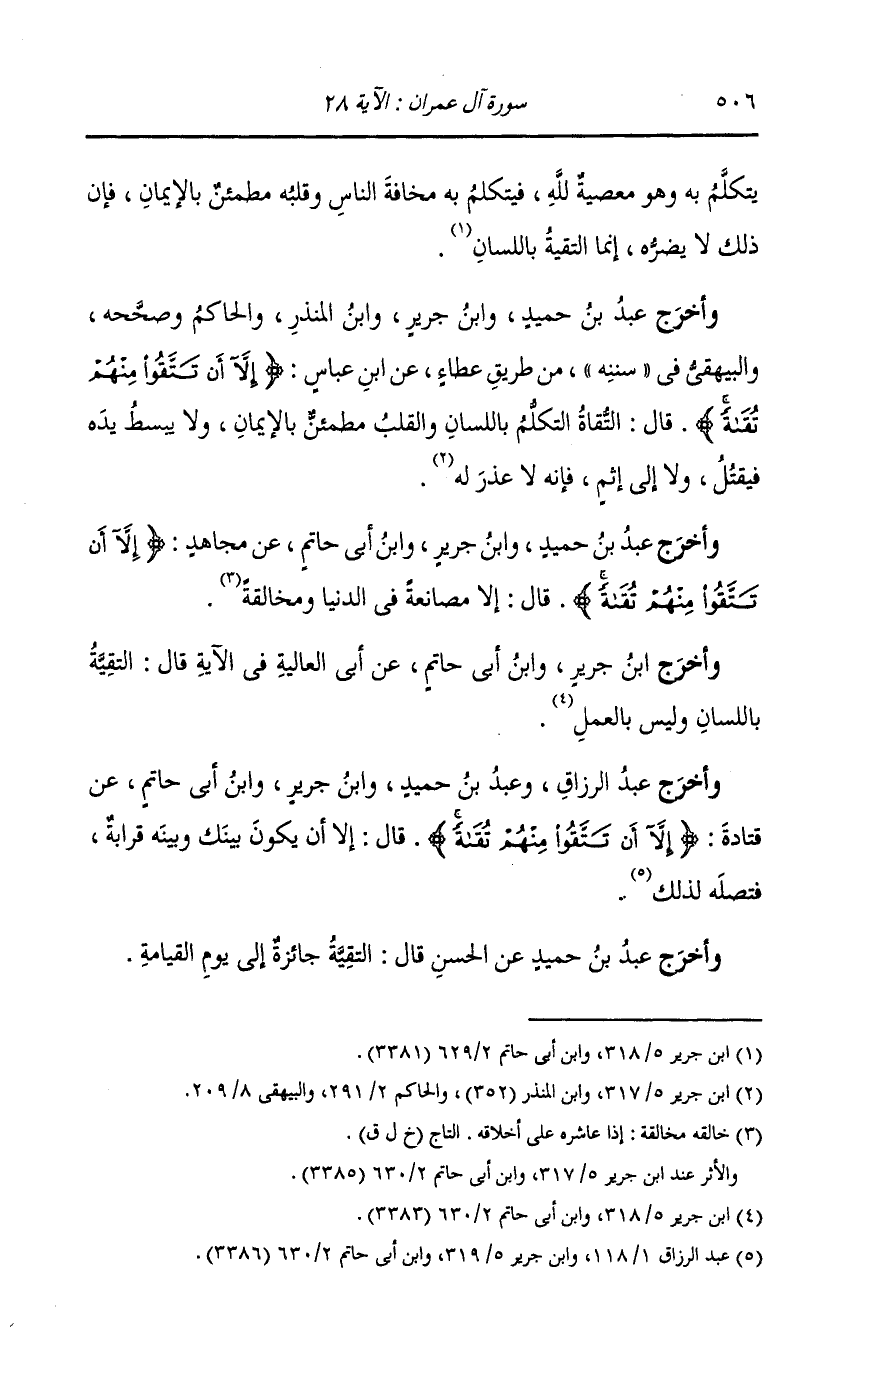 ٥٠٦ سورة آل عمران : الآية ٢٨
يتكلَّمُ به وهو معصيةٌ للَّهِ ، فيتكلمُ به مخافةَ الناسِ وقلبُه مطمئنٌ بالإيمانِ ، فإن
ذلك لا يضرُّه ، إنما التقيةُ باللسانِ(١) .
وأخرَج عبدُ بنُ حميدٍ ، وابنُ جريرٍ ، وابنُ المنذرِ ، والحاكمُ وصحَّحه ،
والبيهقىُّ فى « سننِه » ، من طريقِ عطاءٍ ، عن ابنِ عباسٍ : ﴿ إِلَّآ أَن تَتَّقُوا۟ مِنْهُمْ
تُقَىٰةً ۗ ﴾ . قال : التُّقاةُ التكلُّمُ باللسانِ والقلبُ مطمئنٌّ بالإيمانِ ، ولا يبسطُ يدَه
فيقتُلُ ، ولا إلى إثمٍ ، فإنه لا عذرَ له(٢) .
وأخرَج عبدُ بنُ حميدٍ ، وابنُ جريرٍ ، وابنُ أبى حاتمٍ ، عن مجاهدٍ : ﴿ إِلَّآ أَن
تَتَّقُوا۟ مِنْهُمْ تُقَىٰةً ۗ ﴾ . قال : إلا مصانعةً فى الدنيا ومخالقةً(٣) .
وأخرَج ابنُ جريرٍ ، وابنُ أبى حاتمٍ ، عن أبى العاليةِ فى الآيةِ قال : التقيَّةُ
باللسانِ وليس بالعملِ(٤) .
وأخرَج عبدُ الرزاقِ ، وعبدُ بنُ حميدٍ ، وابنُ جريرٍ ، وابنُ أبى حاتمٍ ، عن
قتادةَ : ﴿ إِلَّآ أَن تَتَّقُوا۟ مِنْهُمْ تُقَىٰةً ۗ ﴾ . قال : إلا أن يكونَ بينَك وبينَه قرابةٌ ،
فتصلَه لذلك(٥) .
وأخرَج عبدُ بنُ حميدٍ عن الحسنِ قال : التقيَّةُ جائزةٌ إلى يومِ القيامةِ .
(١) ابن جرير ٥/ ٣١٨، وابن أبى حاتم ٢/ ٦٢٩ (٣٣٨١) .
(٢) ابن جرير ٥/ ٣١٧، وابن المنذر (٣٥٢) ، والحاكم ٢/ ٢٩١، والبيهقى ٨/ ٢٠٩.
(٣) خالقه مخالقة : إذا عاشره على أخلاقه . التاج (خ ل ق) .
والأثر عند ابن جرير ٥/ ٣١٧، وابن أبى حاتم ٢/ ٦٣٠ (٣٣٨٥) .
(٤) ابن جرير ٥/ ٣١٨، وابن أبى حاتم ٢/ ٦٣٠ (٣٣٨٣) .
(٥) عبد الرزاق ١/ ١١٨، وابن جرير ٥/ ٣١٩، وابن أبى حاتم ٢/ ٦٣٠ (٣٣٨٦) .